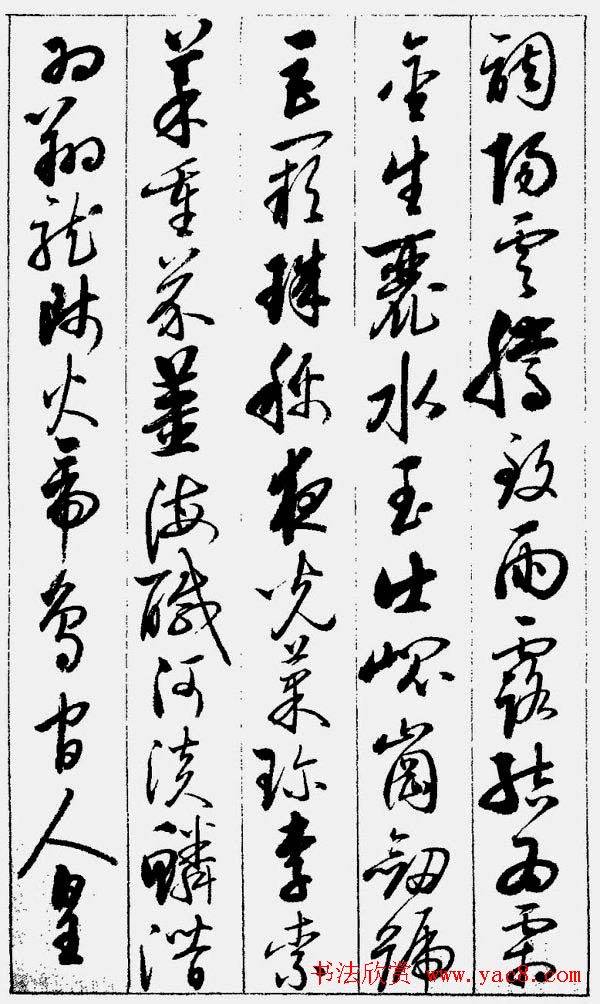 調陽雲騰致雨露結為霜
金生麗水玉出崐崗劍號
巨闕珠稱夜光菓珍李柰
菜重芥薑海鹹河淡鱗潛
羽翔龍師火帝鳥官人皇
书法欣赏 www.yac8.com